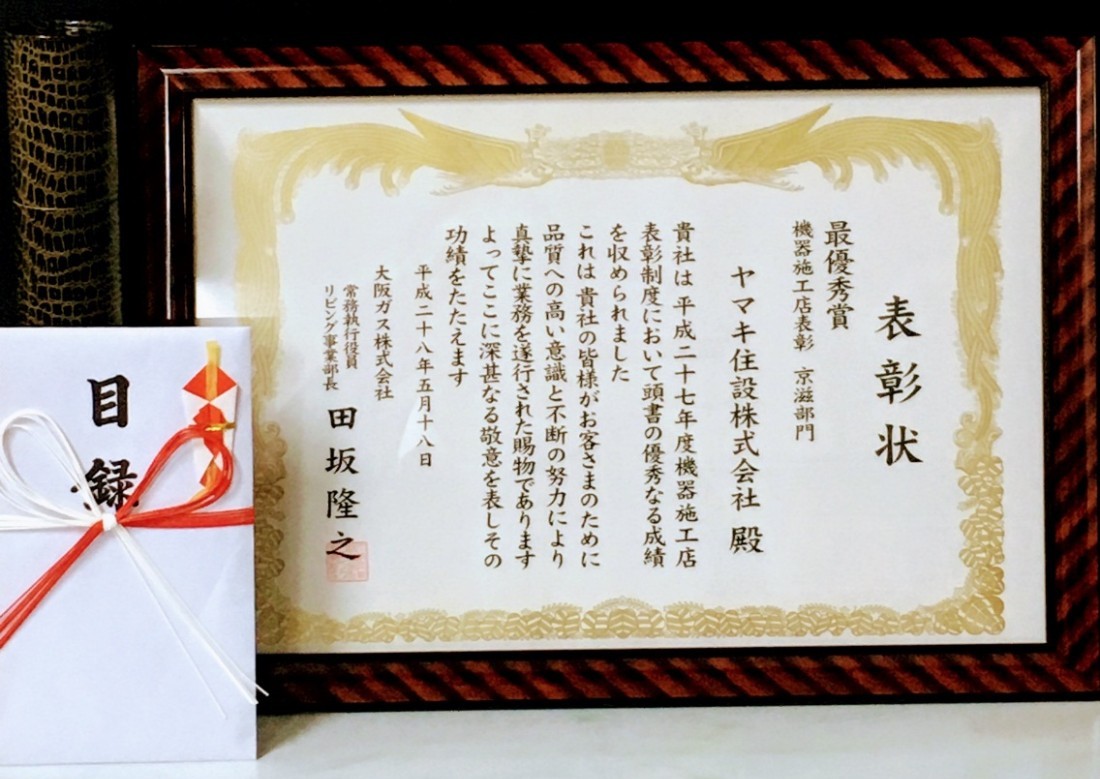 表彰状
最優秀賞
機器施工店表彰 京滋部門
ヤマキ住設株式会社 殿
貴社は平成二十七年度機器施工店
表彰制度において頭書の優秀なる成績
を収められました
これは貴社の皆様がお客さまのために
品質への高い意識と不断の努力により
真摯に業務を遂行された賜物であります
よってここに深甚なる敬意を表しその
功績をたたえます
平成二十八年五月十八日
大阪ガス株式会社
常務執行役員
リビング事業部長
田坂隆之
目録